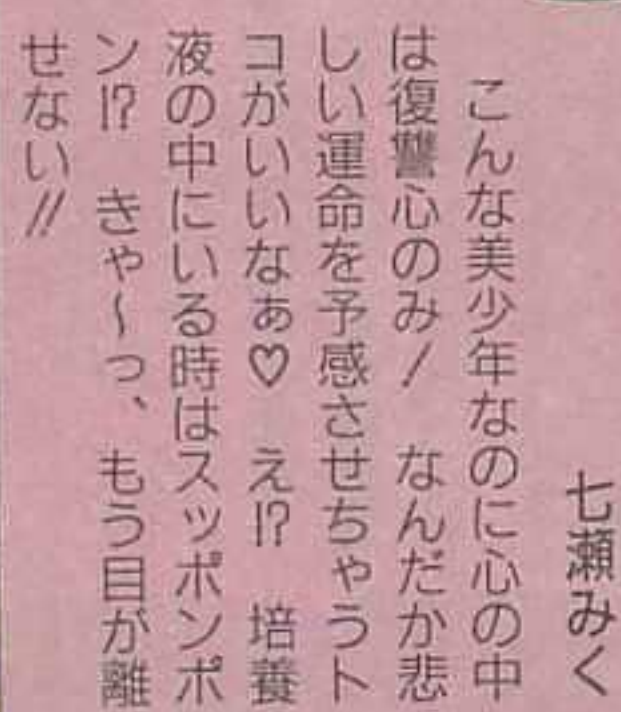 七瀬みく
こんな美少年なのに心の中
は復讐心のみ！　なんだか悲
しい運命を予感させちゃうト
コがいいなぁ♡　え!?　培養
液の中にいる時はスッポンポ
ン!?　きゃ〜っ、もう目が離
せない!!